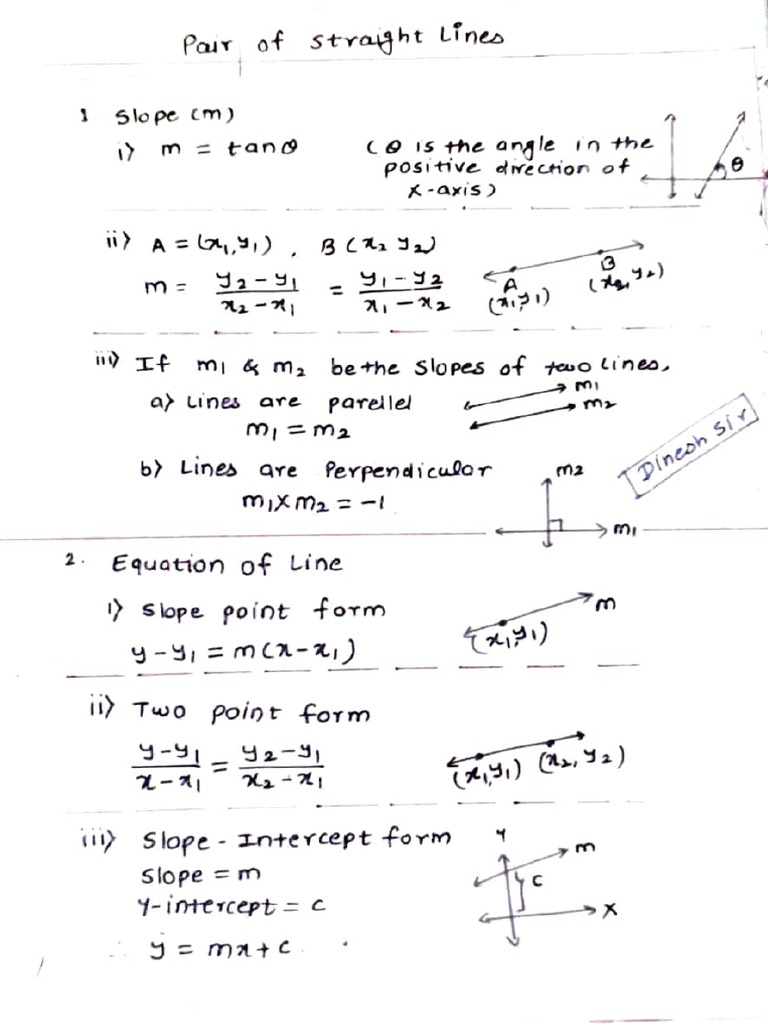 Pair of straight Lines
1 Slope (m)
i) m = tanθ (θ is the angle in the
positive direction of
x-axis)
θ
ii) A = (x₁, y₁) , B (x₂ y₂)
m = (y₂ - y₁)/(x₂ - x₁) = (y₁ - y₂)/(x₁ - x₂)
A B
(x₁, y₁) (x₂, y₂)
iii) If m₁ & m₂ be the slopes of two lines,
a) Lines are parellel m₁
m₂
m₁ = m₂
Dinesh Sir
b) Lines are Perpendicular m₂
m₁ x m₂ = -1
m₁
2. Equation of Line
i) Slope point form m
(x₁, y₁)
y - y₁ = m(x - x₁)
ii) Two point form
(y - y₁)/(x - x₁) = (y₂ - y₁)/(x₂ - x₁)
(x₁, y₁) (x₂, y₂)
iii) Slope - Intercept form Y m
Slope = m
C
Y-intercept = c X
∴ y = mx + c.